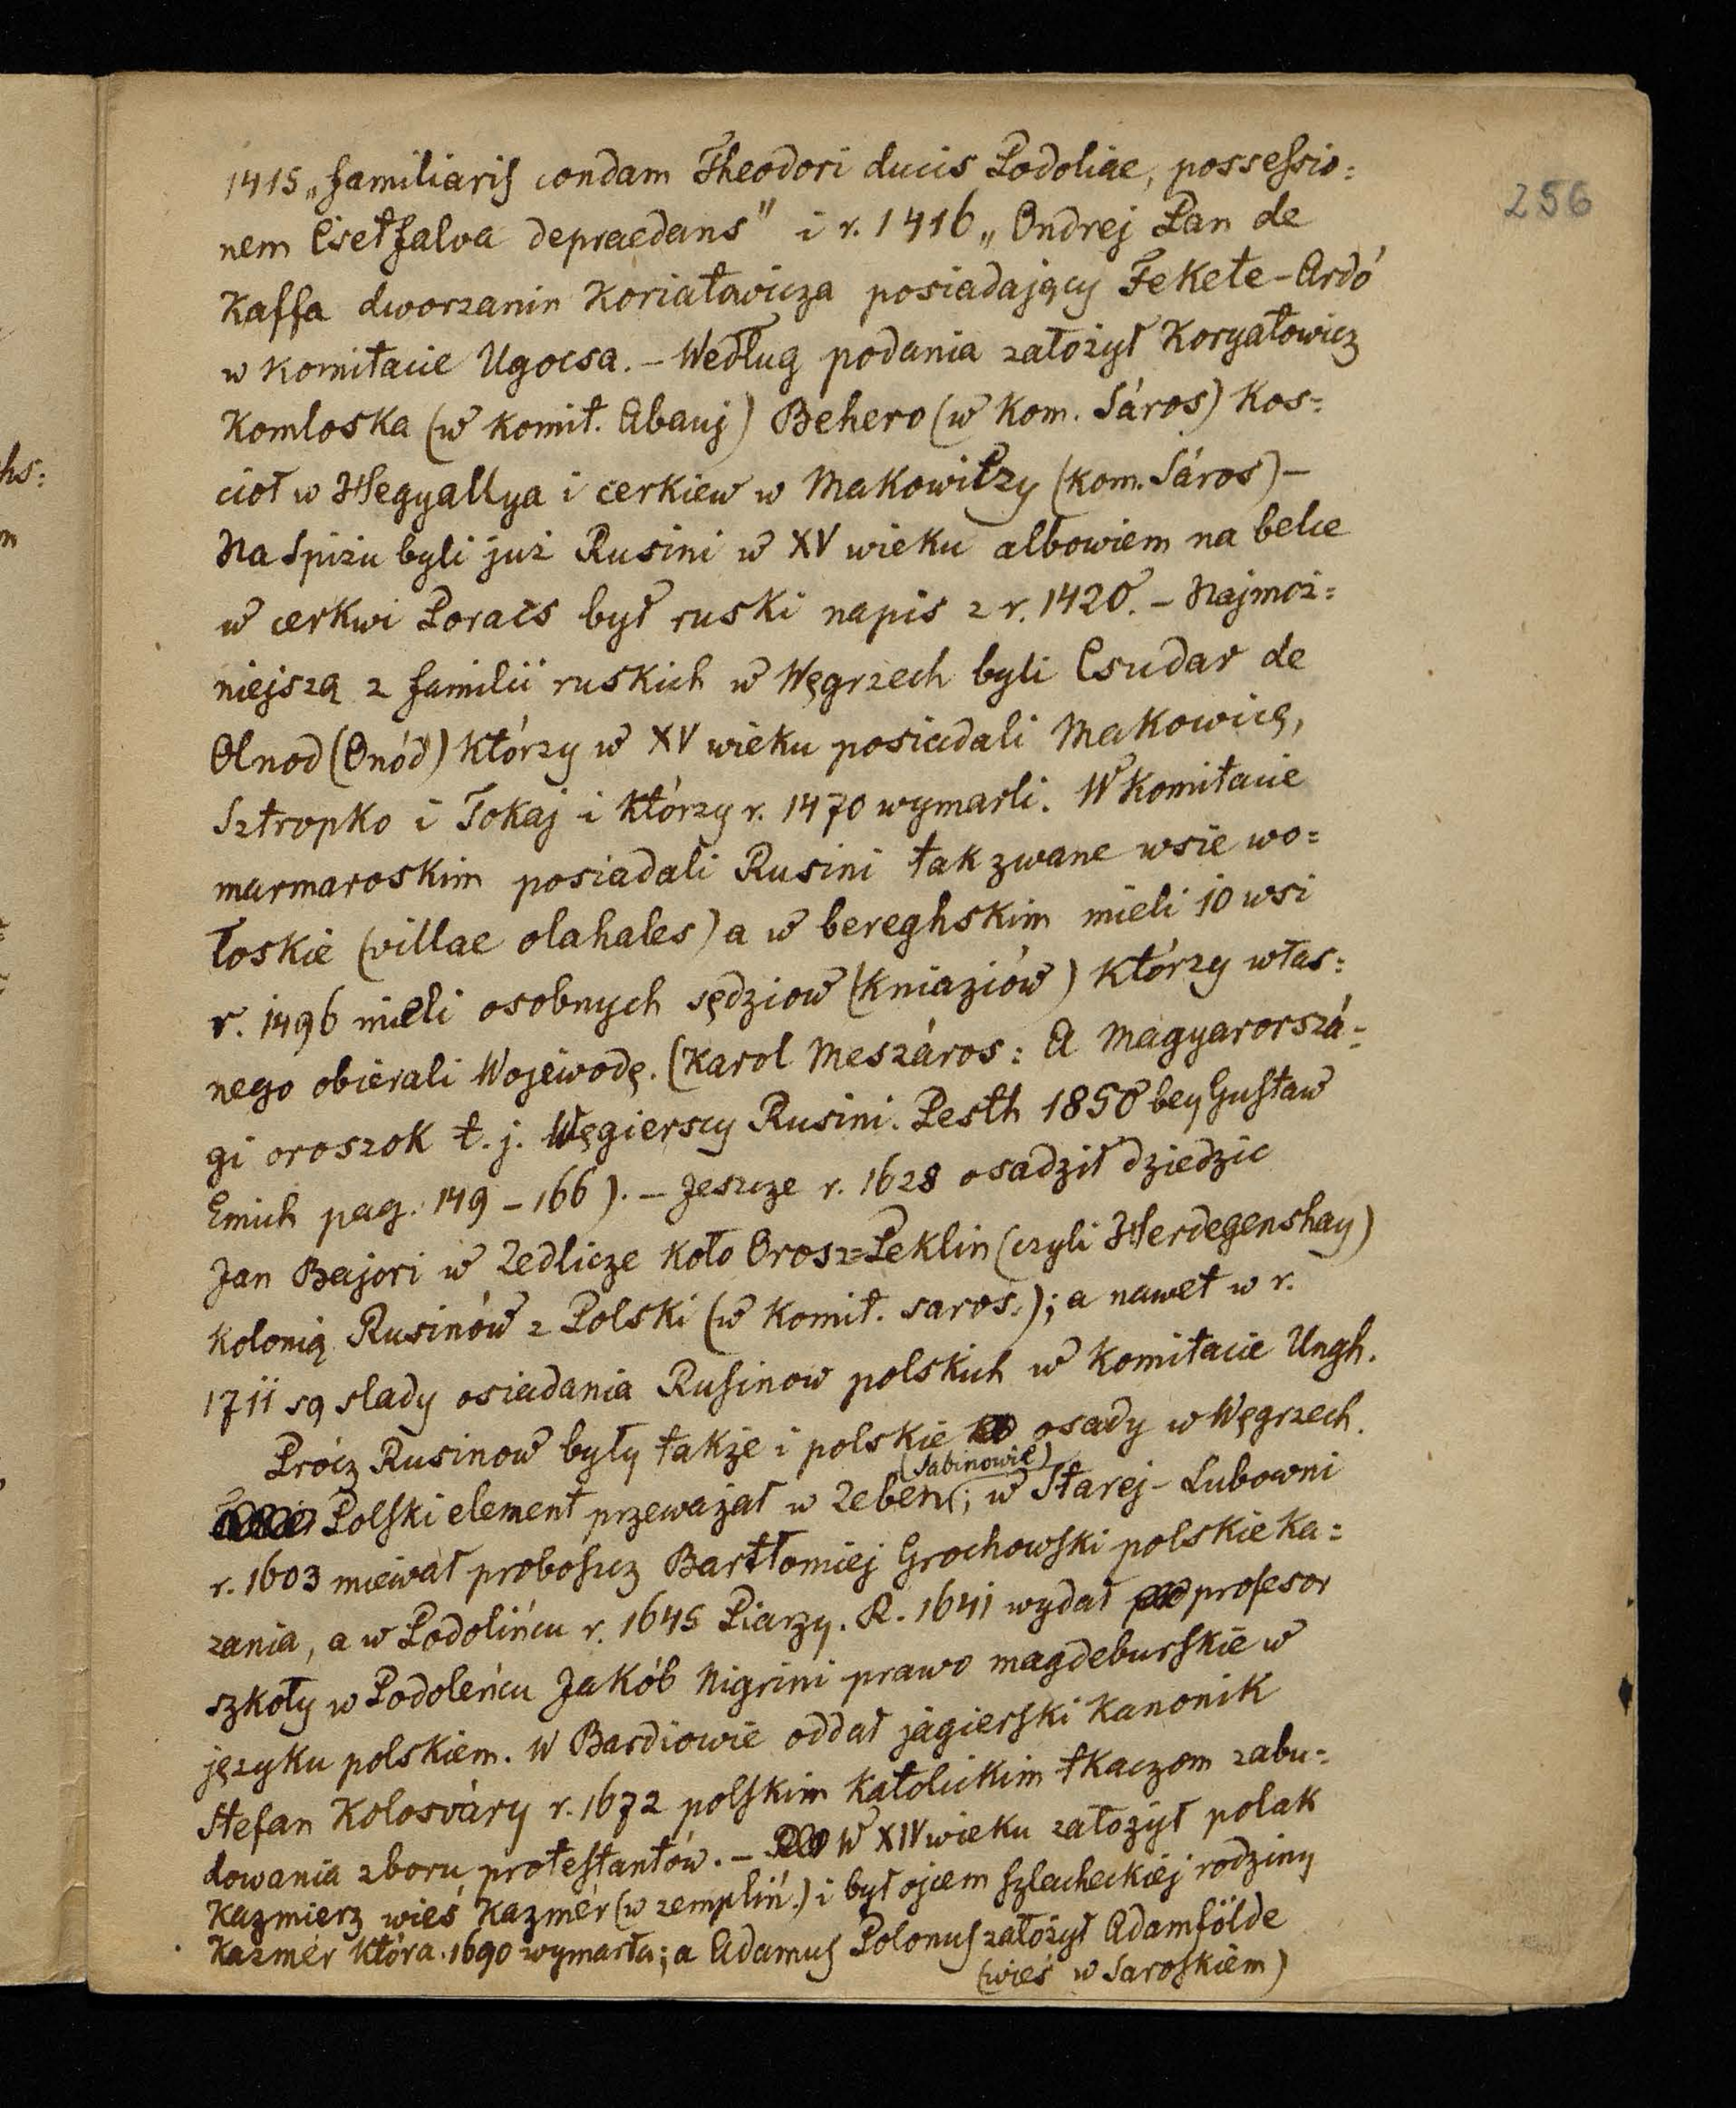 256
1415 „familiaris condam Theodori ducis Podoliae, possessio=
nem Csetfalva depraedans" i r. 1416 „Ondrej Pan de
Kaffa dworzanin Koriatowicza posiadający Fekete-Ardó
w komitacie Ugocsa. – Według podania założył Koryatowicz
Komloska (w komit. Abauj) Behero (w kom. Sáros) Kos=
cioł w Hegyallya i cerkiew w Makowitzy (kom. Sáros) –
Na Spiżu byli już Rusini w XV wieku albowiem na belce
w cerkwi Poracs był ruski napis z r. 1420. – Najmoż=
niejszą z familii ruskich w Węgrzech byli Csudar de
Olnod (Onód) którzy w XV wieku posiadali Makowicę,
Sztropko i Tokaj i którzy r. 1470 wymarli. W komitacie
marmaroskim posiadali Rusini tak zwane wsie wo=
łoskie (villae olahales) a w bereghskim mieli 10 wsi
r. 1496 mieli osobnych sędziow (kniaziów) którzy włas=
nego obierali Wojewodę. (Karol Meszáros: A Magyarorszá=
gi oroszok t. j. Węgierscy Rusini. Pesth 1850 bey Gustaw
Emich pag. 149 – 166). – Jeszcze r. 1628 osadził dziedzic
Jan Bajori w Zedlicze koło Orosz=Peklin (czyli Herdegenshay)
kolonią Rusinów z Polski (w komit. saros.); a nawet w r.
1711 są slady osiadania Rusinow polskich w komitacie Ungh.
Prócz Rusinow były także i polskie osady w Węgrzech.
(Sabinowie)
Polski element przeważał w Zeben; w Starej-Lubowni
r. 1603 miewał proboszcz Bartłomiej Grochowski polskie ka=
zania, a w Podolińcu r. 1645 Piarzy. R. 1641 wydał profesor
szkoły w Podoleńcu Jakób Nigrini prawo magdeburskie w
języku polskiem. W Bardiowie oddał jagierski kanonik
Stefan Kolosváry r. 1672 polskim katolickim tkaczom zabu=
dowania zboru protestantów. – W XIV wieku założył polak
Kazmierz wieś Kazmér (w zempliń.) i był ojcem szlacheckiej rodziny
Kazmér która 1690 wymarła; a Adamus Polonus założył Adamfölde
(wieś w Saroskiem)